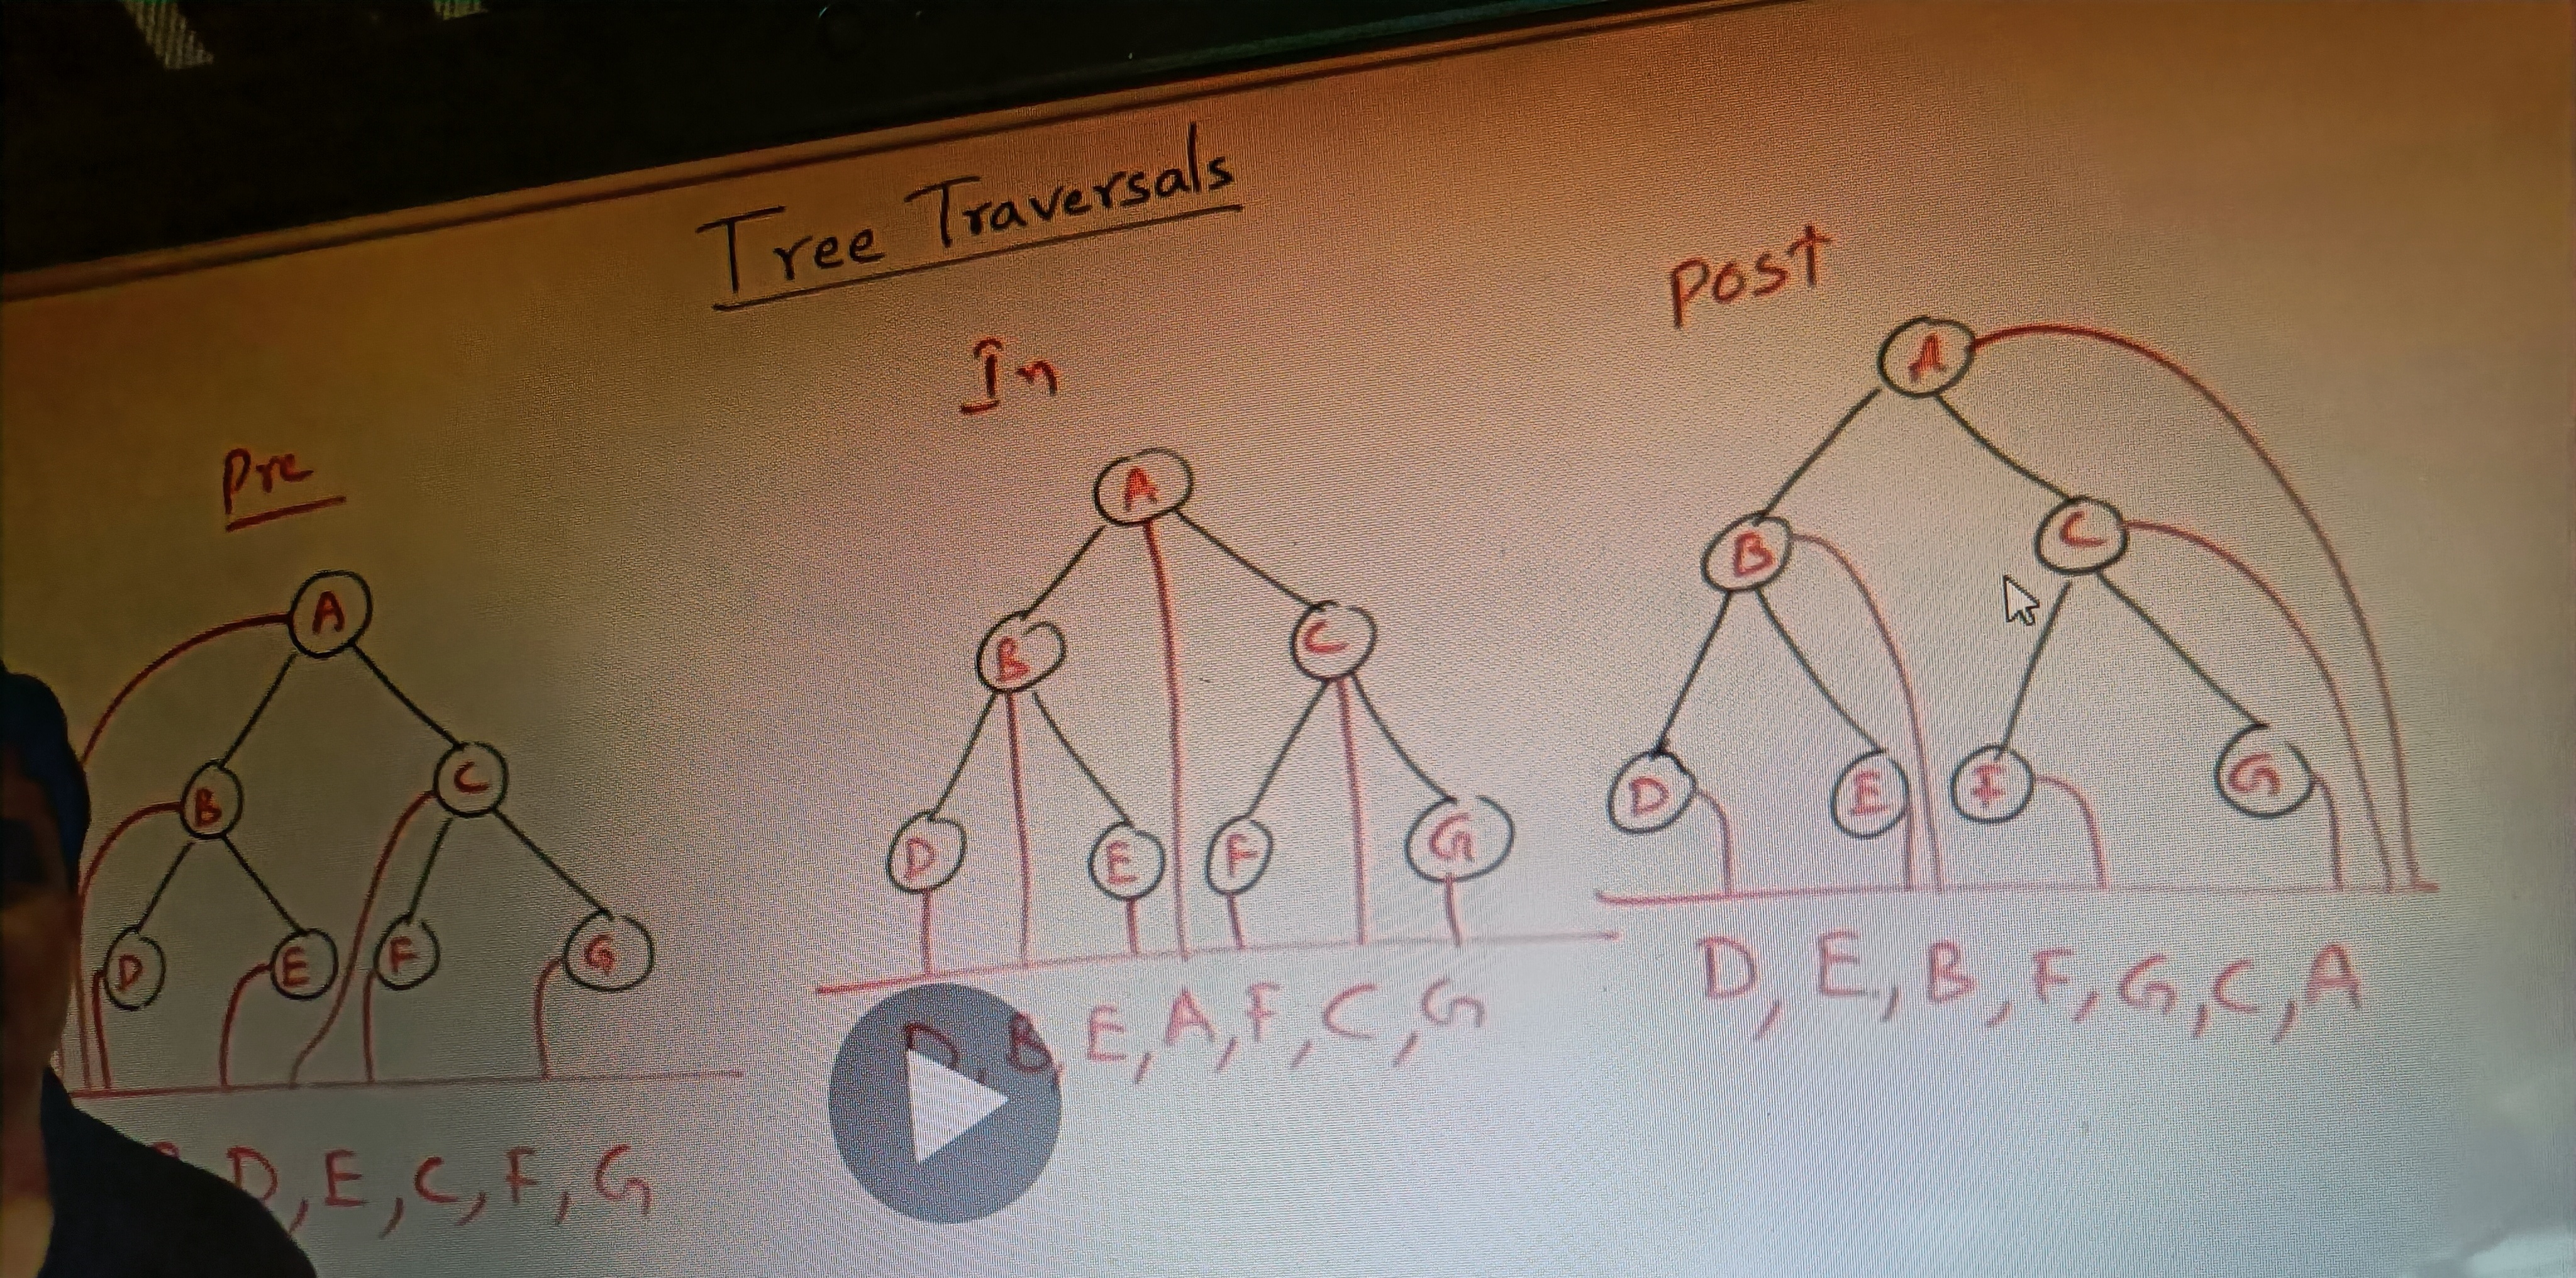 Tree Traversals
Pre
A
B C
D E F G
D, E, C, F, G
In
A
B C
D E F G
D, B, E, A, F, C, G
Post
A
B C
D E F G
D, E, B, F, G, C, A